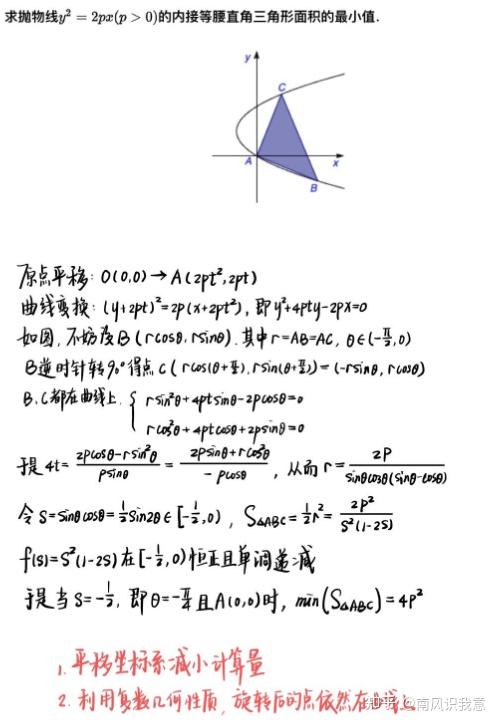 求抛物线y² = 2px(p > 0)的内接等腰直角三角形面积的最小值.
y
C
A
x
B
原点平移: O(0,0) → A(2pt², 2pt)
曲线变换: (y+2pt)² = 2p(x+2pt²), 即y²+4pty-2px=0
如图, 不妨设B(rcosθ, rsinθ). 其中r=AB=AC, θ∈(-π/2, 0)
B逆时针转90°得点C(rcos(θ+π/2), rsin(θ+π/2)) = (-rsinθ, rcosθ)
B、C都在曲线上, { rsin²θ+4ptsinθ-2pcosθ=0
rcos²θ+4ptcosθ+2psinθ=0
于是4t= (2pcosθ-rsin²θ)/(psinθ) = (2psinθ+rcos²θ)/(-pcosθ), 从而r= 2p/(sinθcosθ(sinθ-cosθ))
令S=sinθcosθ=½sin2θ∈[-½,0), S△ABC=½r²= 2p²/(S²(1-2S))
f(S)=S²(1-2S)在[-½,0)恒正且单调递减
于是当S=-½, 即θ=-π/4且A(0,0)时, min(S△ABC)=4p²
1. 平移坐标系减小计算量
2. 利用复数几何性质, 旋转后的点依然在
知乎 @南风识我意